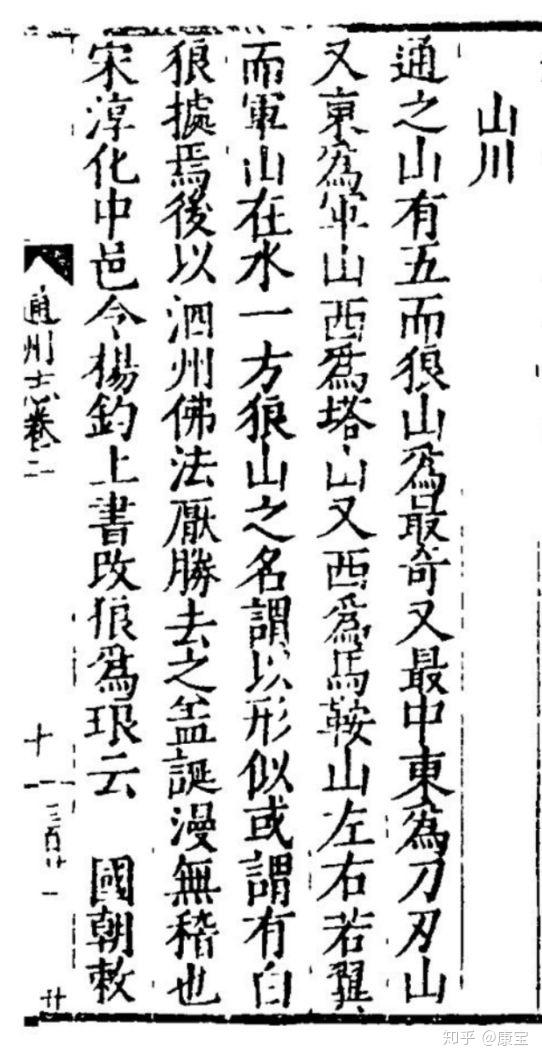 山川
通之山有五而狼山爲最奇又最中東爲刀刃山
又東爲軍山西爲塔山又西爲馬鞍山左右若翼
而軍山在水一方狼山之名謂以形似或謂有白
狼據焉後以泗州佛法厭勝去之盖誕漫無稽也
宋淳化中邑令楊鈞上書改狼爲琅云 國朝敕
通州志卷二
十一
知乎 @康宝